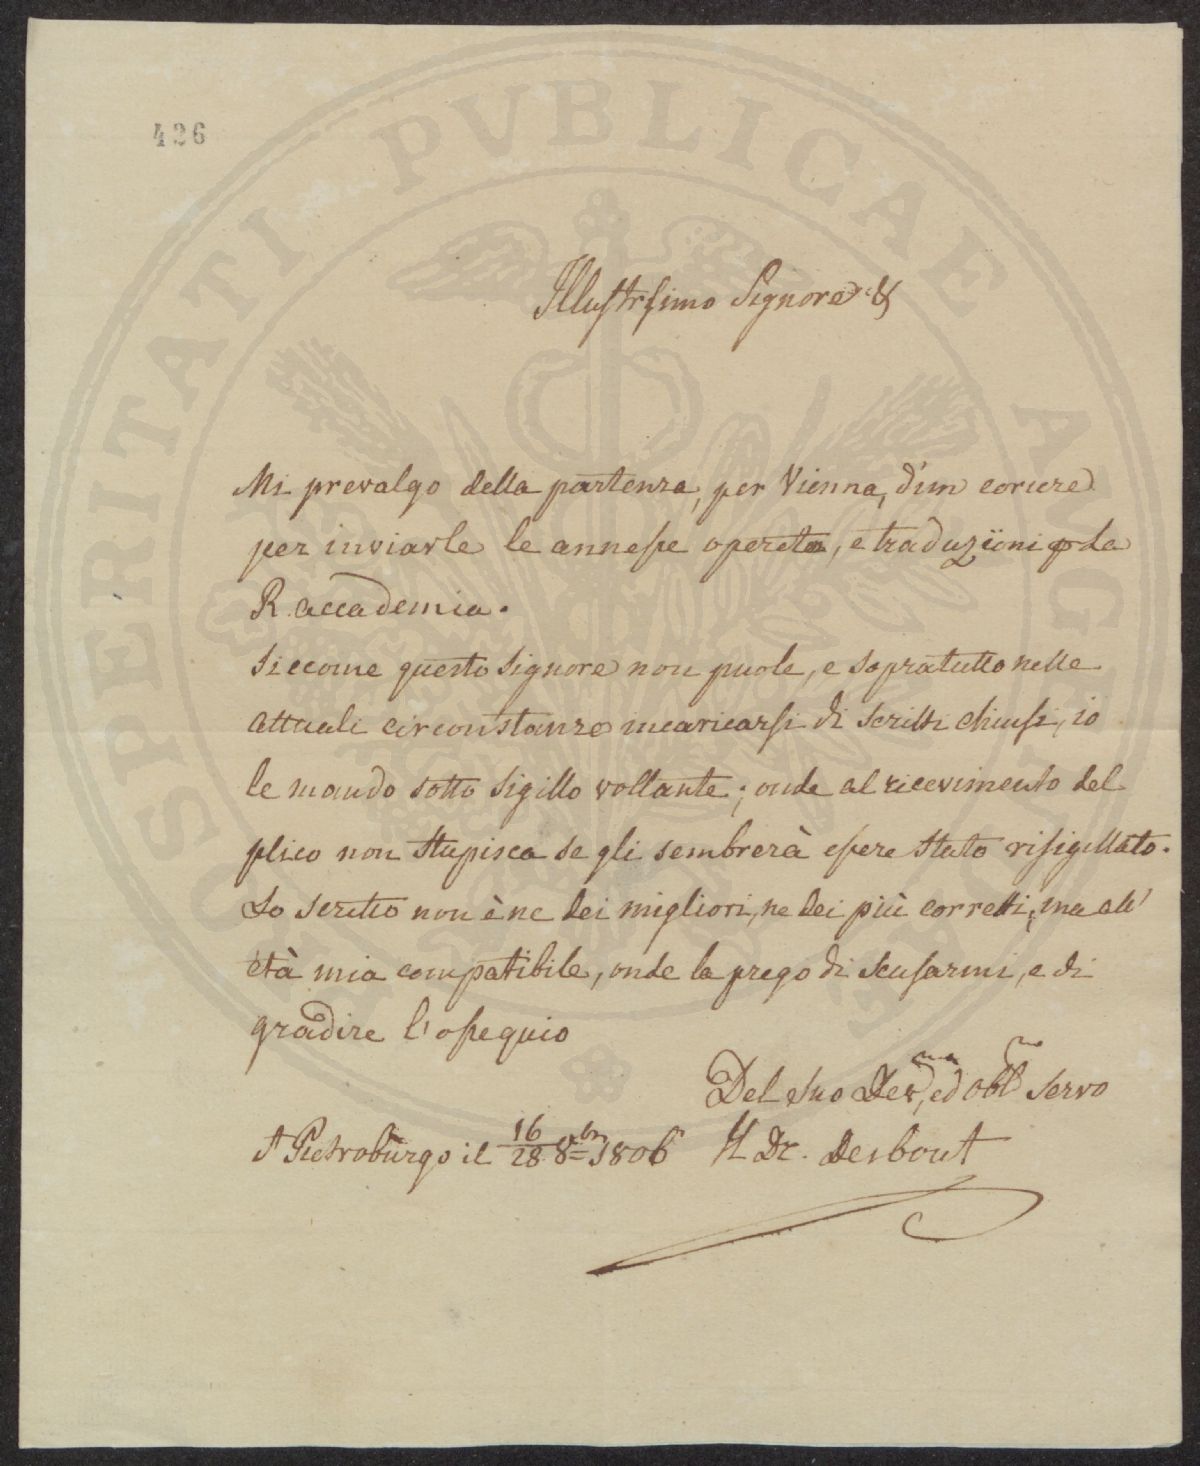 426
Illustrssimo Signore &
Mi prevalgo della partenza, per Vienna, d'un corriere
per inviarle le annesse operette, e traduzioni p la
R. accademia.
Siccome questo signore non puole, e sopratutto nelle
attuali circonstanze incaricarsi di scritti chiusi, io
le mando sotto sigillo vollante; onde al ricevimento del
plico non stupisca se gli sembrerà essere stato risigillato.
Lo scritto non è ne dei migliori, ne dei più corretti, ma all'
età mia compatibile, onde la prego di scusarmi, e di
gradire l'ossequio
Del suo Devmo, ed obblmo servo
St Pietroburgo il 16/28 8bre 1806 Il Dr. Desbout